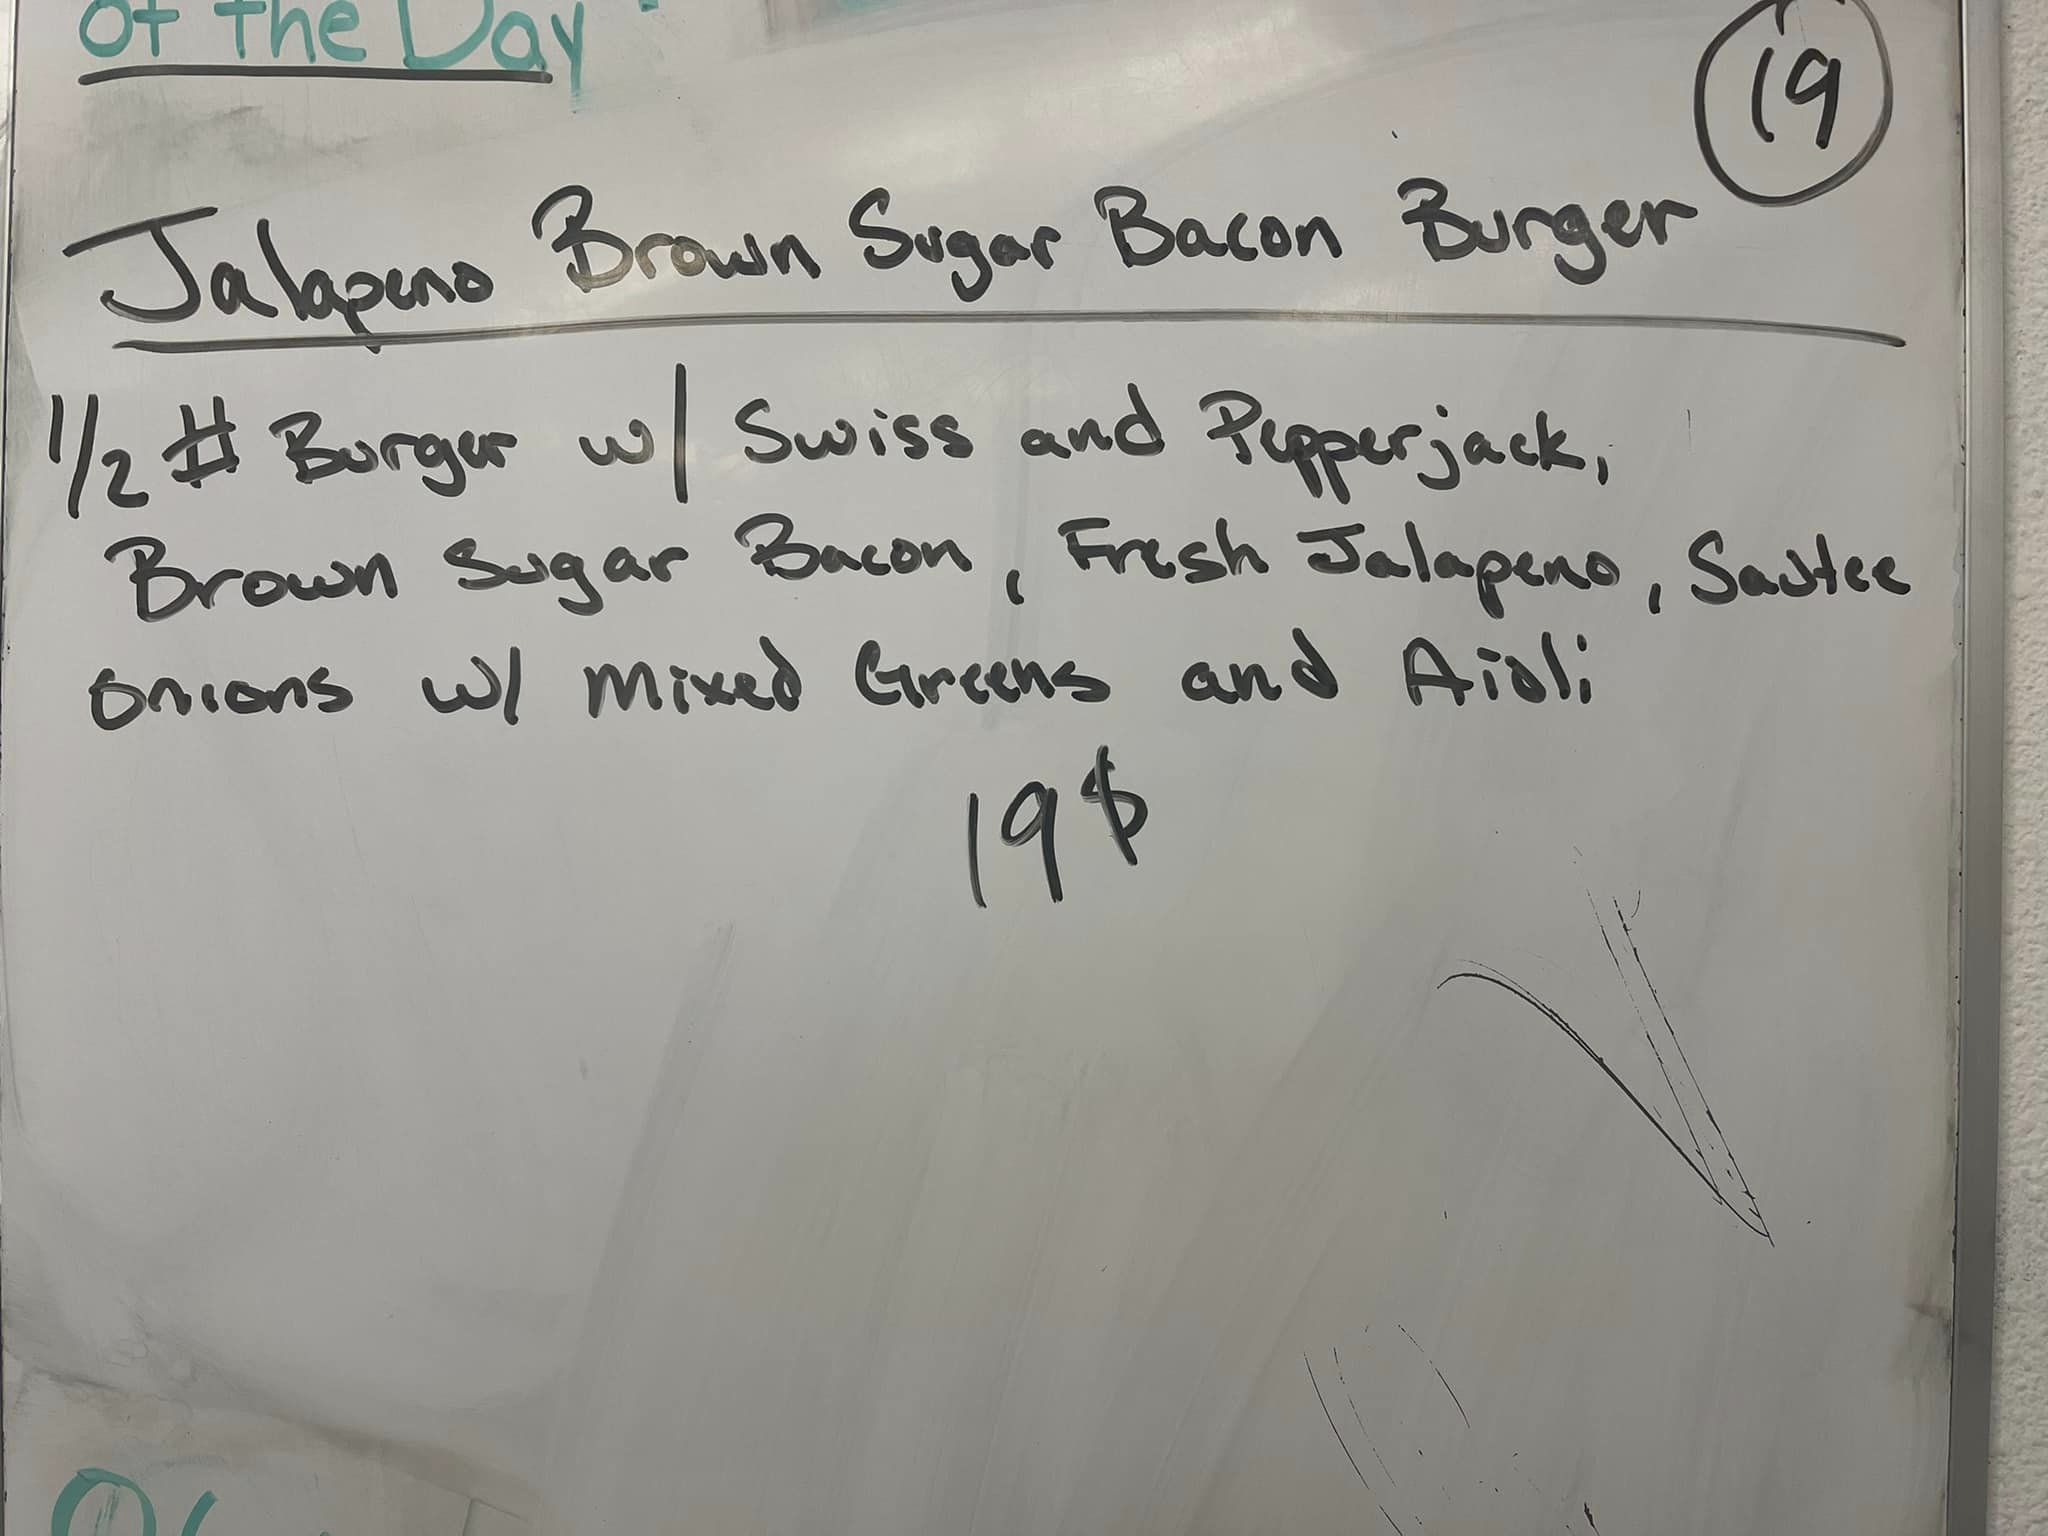 of the Day
19
Jalapeno Brown Sugar Bacon Burger
1/2 # Burger w/ Swiss and Pepperjack,
Brown Sugar Bacon, Fresh Jalapeno, Sautee
onions w/ mixed Greens and Aioli
19$